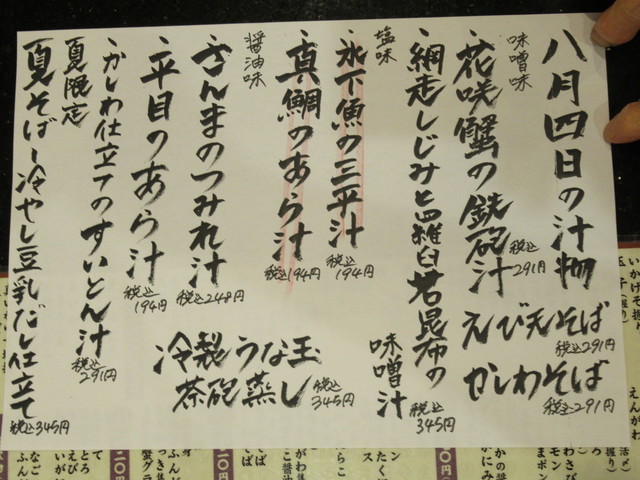 八月四日の汁物
味噌味
・花咲蟹の鉄砲汁
税込291円
・網走しじみと羅臼若昆布の
味噌汁
税込345円
塩味
・氷下魚の三平汁
税込194円
・真鯛のあら汁
税込194円
醤油味
・さんまのつみれ汁
税込248円
・平目のあら汁
税込194円
・かしわ仕立てのすいとん汁
税込291円
夏限定
夏そば〜冷やし豆乳だし仕立て
税込345円
えび天そば
税込291円
かしわそば
税込291円
冷製うな玉
茶碗蒸し
税込345円